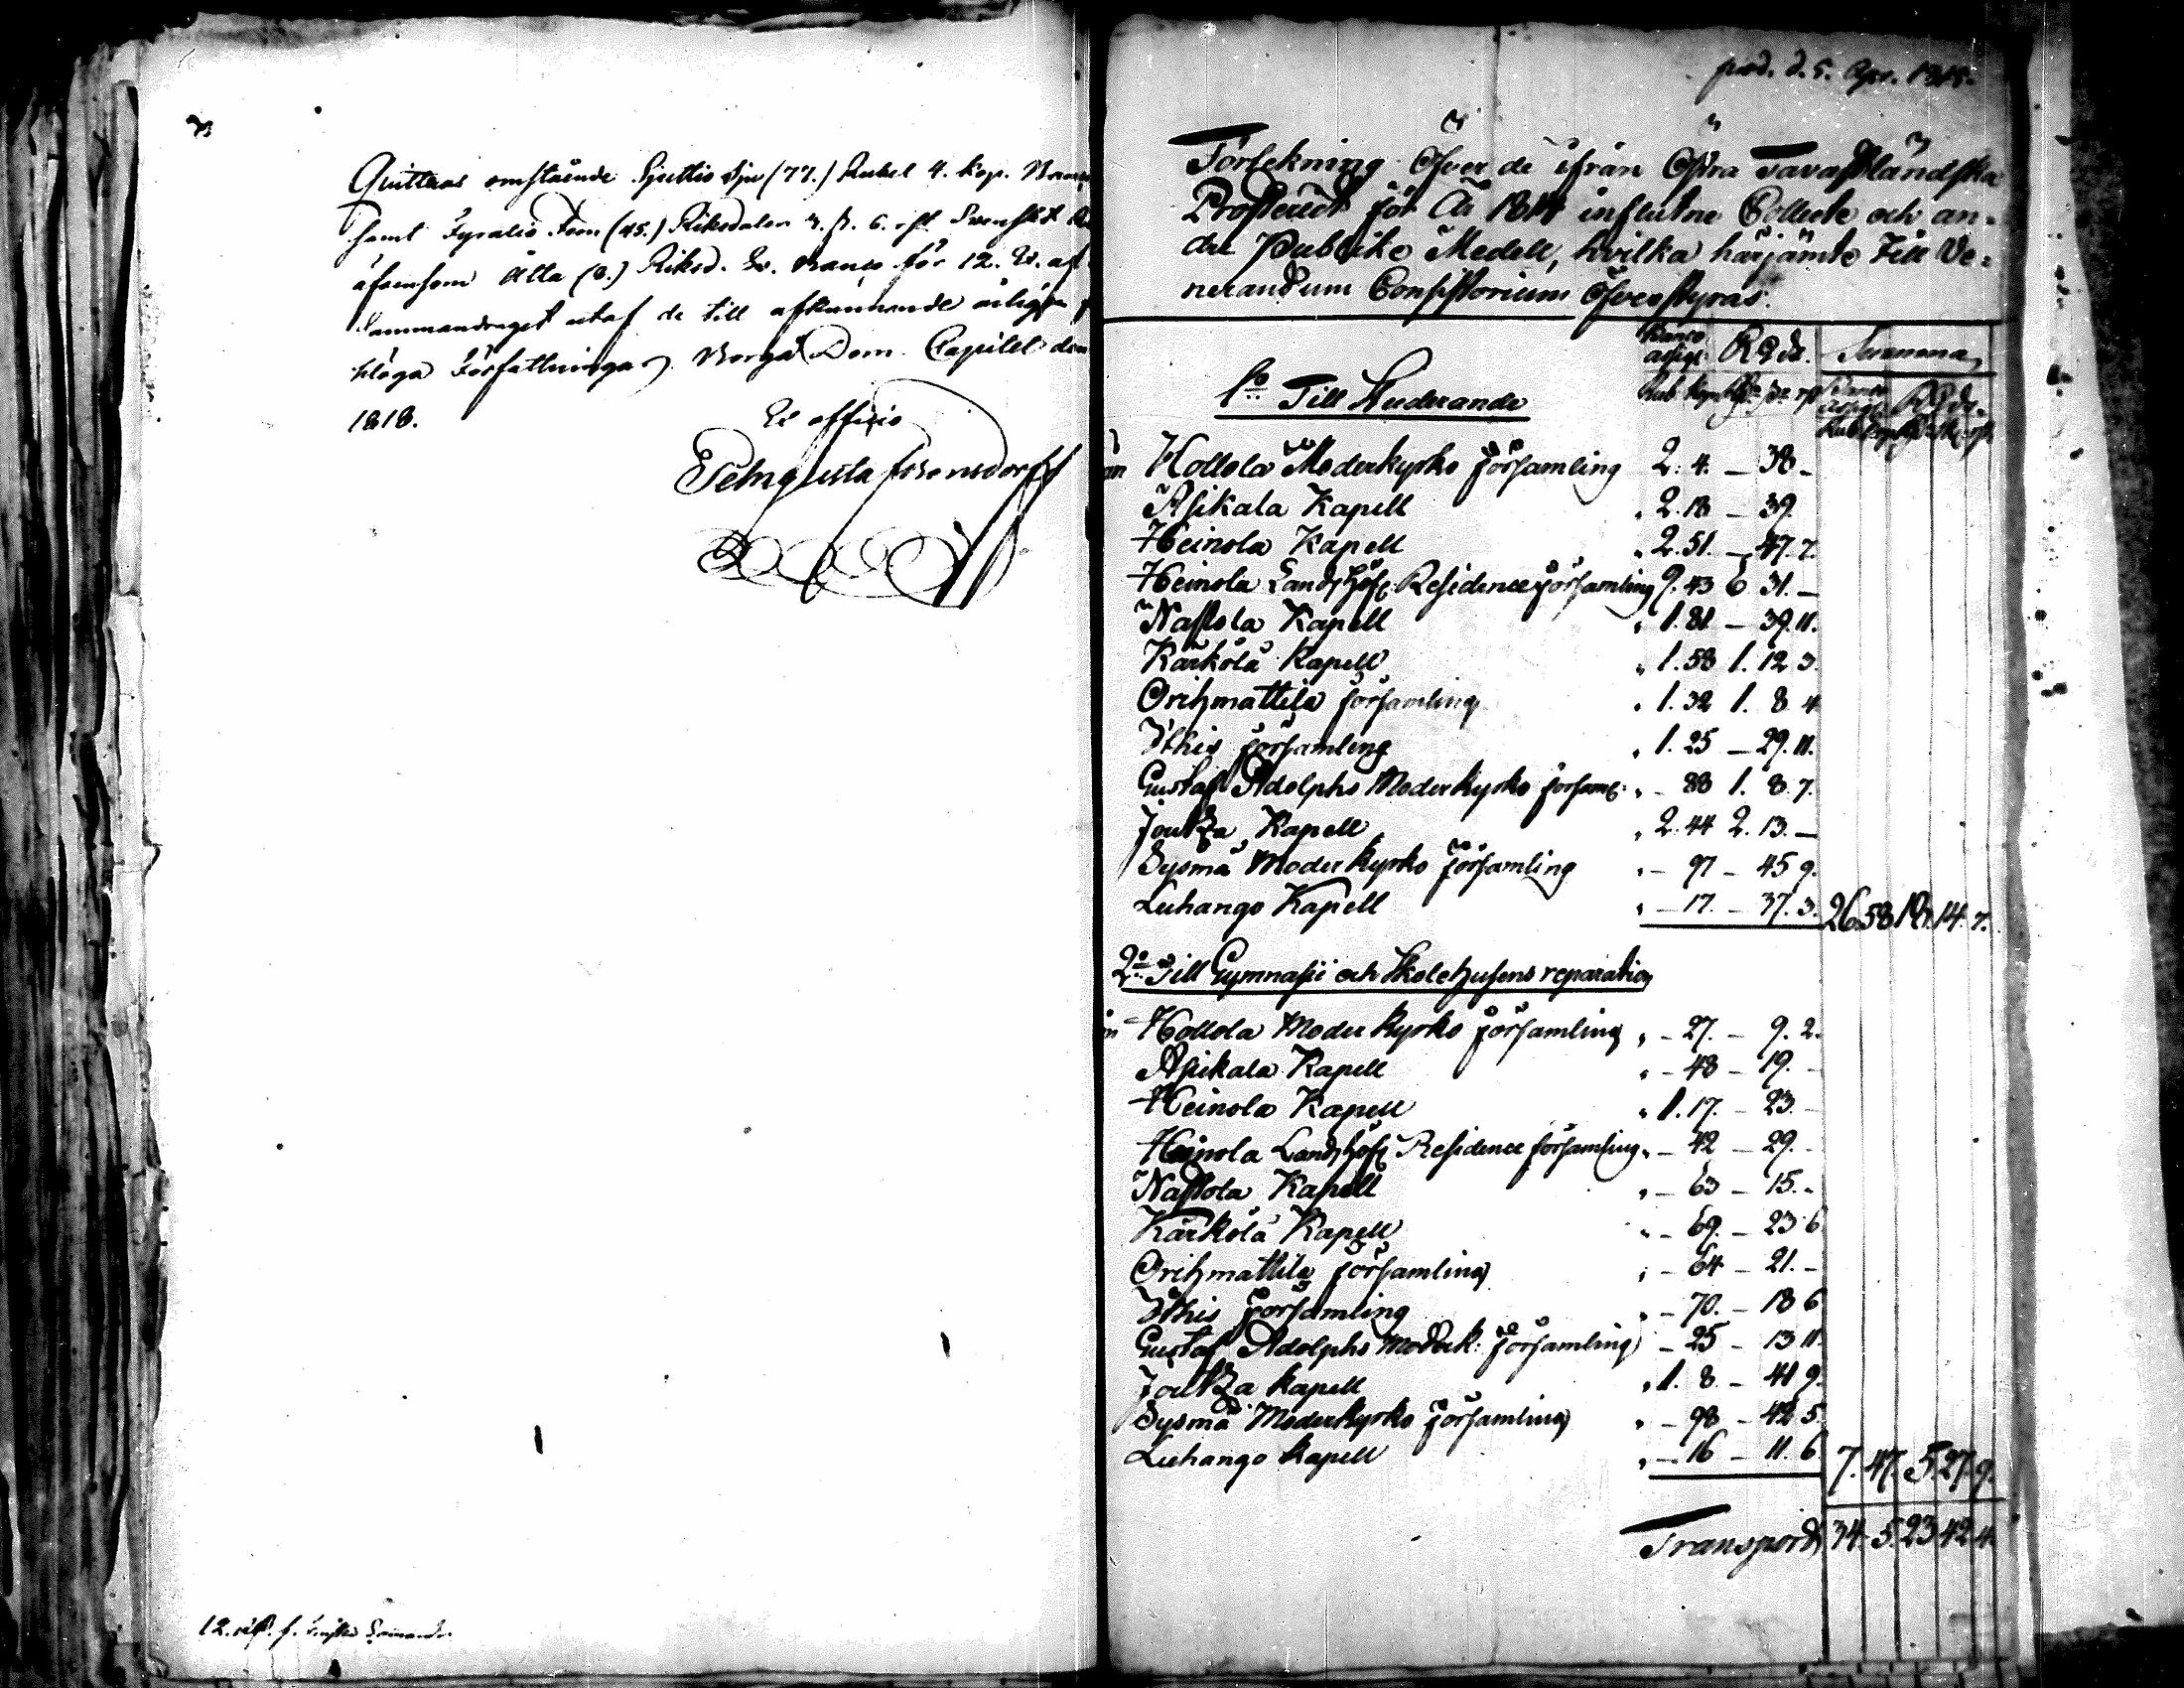 Quitteras omstående Sjuttio Sju (77.) Rubel 4. kop. Banco
samt Fyratio Fem (45.) Riksdaler 3. s. 6. rst. Svenskt
äfvensom Åtta (8.) Riksd. Sv. Banco för 12. Ex. af
Sammandraget utaf de till afkunnande årligen
Författningar. Borgå Dom Capitel den
1818.
Ex officio
12. rst. f.
prod. d. 5. Apr. 1815.
Förtekning Öfver de ifrån Östra Tavastländska
Prosteriet för År 1814 influtne Collecte och an-
dre Publike Medell, hvilka härjämte till Ve-
nerandum Consistorium Öfverstyras.
Banco assign: RGds. Summa
Rub. kop. Rd. sk. rst. Banco assign: RGds.
Rub. kop. Rd. sk. rst.
1o Till Studerande
Hollola Moderkyrko församling 2. 4. — 38 —
Asikala Kapell " 2. 18 — 39.
Heinola Kapell " 2. 51. — 47. 7.
Heinola Landshöfd. Residence församling 9. 43 6 31. —
Nastola Kapell " 1. 81 — 39. 11.
Kärkölä Kapell " 1. 58 1. 12 3.
Orihmattila församling " 1. 32 1. 8 4
Ithis församling " 1. 25 — 29. 11.
Gustaf Adolphs Moderkyrko församl: " — 88 1. 8. 7.
Joutza Kapell " 2. 44 2. 13. —
Sysmä Moderkyrko församling " — 97 — 45 9.
Luhango Kapell " — 17. — 37. 3. 26 58 18. 14. 7.
2o Till Gymnasii och Skolehusens reparation
Hollola Moder Kyrko församling " — 27. — 9. 2.
Asikala Kapell " — 48 — 19. —
Heinola Kapell " 1. 17. — 23. —
Heinola Landshöfd. Residence församling " — 42 — 29. —
Nastola Kapell " — 63 — 15. —
Kärkölä Kapell " — 69. — 23 6
Orihmattila församling " — 64 — 21. —
Ithis församling " — 70. — 18 6
Gustaf Adolphs Moderk: församling — 25 — 13 11.
Joutza kapell " 1. 8 — 41 9.
Sysmä Moderkyrko församling " — 98 — 42 5.
Luhango kapell " — 16 — 11. 6 7. 47. 5. 27. 9.
Transport 34. 5. 23 42 4.